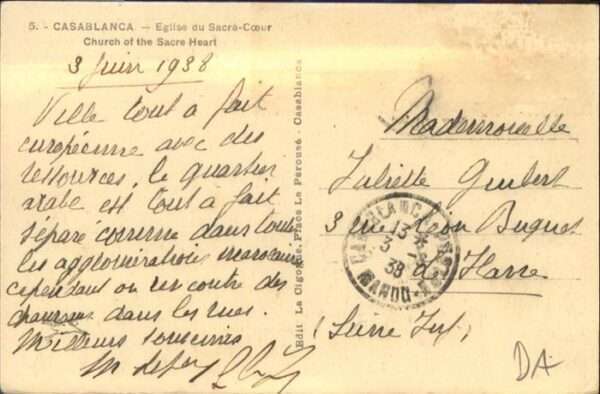 5. - CASABLANCA — Eglise du Sacré-Cœur
Church of the Sacre Heart
3 Juin 1938
Ville tout à fait
européenne avec des
ressources, le quartier
arabe est tout à fait
séparé comme dans toutes
les agglomérations marocaines
cependant on rencontre des
dans les rues.
Meilleurs souvenirs
Edit. La Cigogne, Place La Pérouse - Casablanca
Mademoiselle
Juliette Guibert
3 rue Léon Buquet
Le Havre
(Seine Inf.
CASABLANCA
13
3
38
MAROC
DA